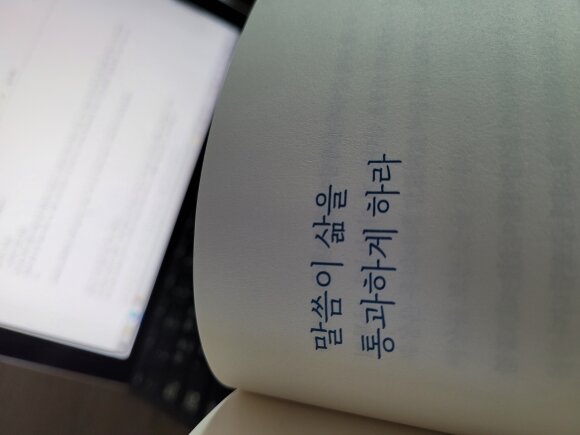 말씀이 삶을
통과하게 하라